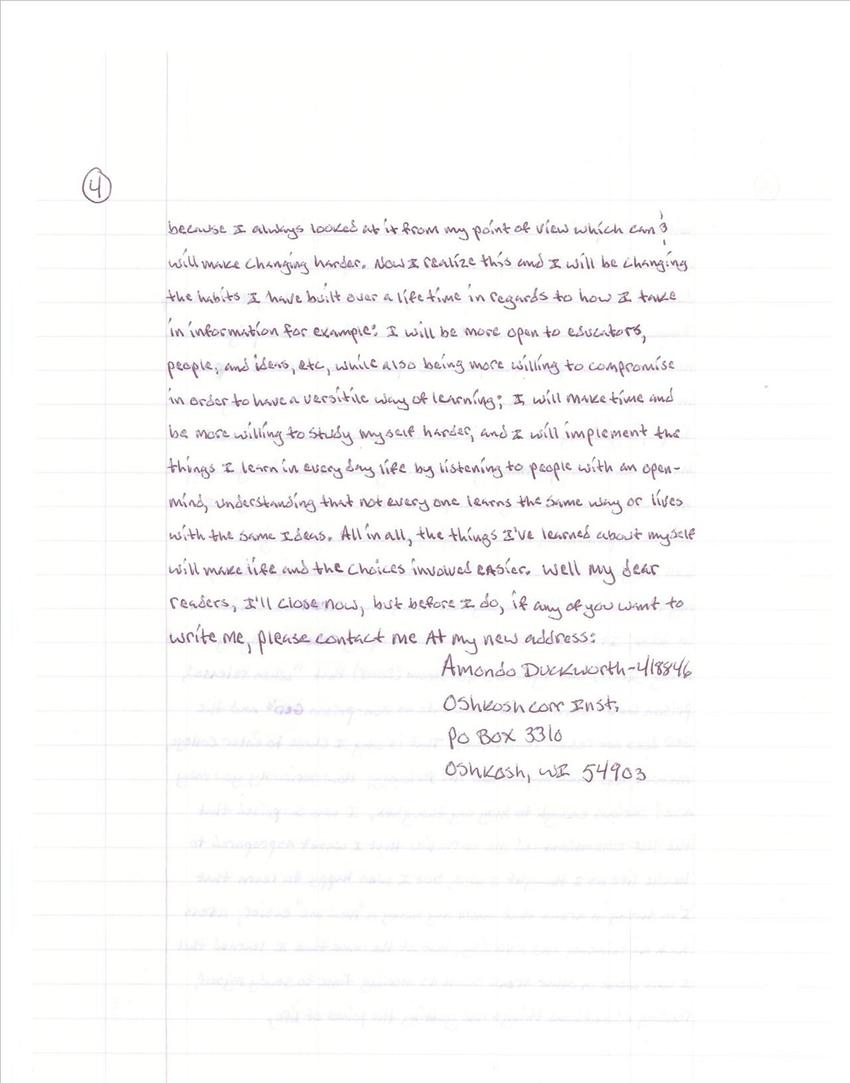 4
because I always looked at it from my point of view which can &
will make changing harder. Now I realize this and I will be changing
the habits I have built over a life time in regards to how I take
in information for example: I will be more open to educators,
people, and ideas, etc, while also being more willing to compromise
in order to have a versitile way of learning; I will make time and
be more willing to study myself harder, and I will implement the
things I learn in every day life by listening to people with an open-
mind, understanding that not every one learns the same way or lives
with the same Ideas. All in all, the things I've learned about myself
will make life and the choices involved easier. Well my dear
readers, I'll close now, but before I do, if any of you want to
write me, please contact me At my new address:
Amondo Duckworth-418846
Oshkosh corr Inst,
PO Box 3310
Oshkosh, WI 54903